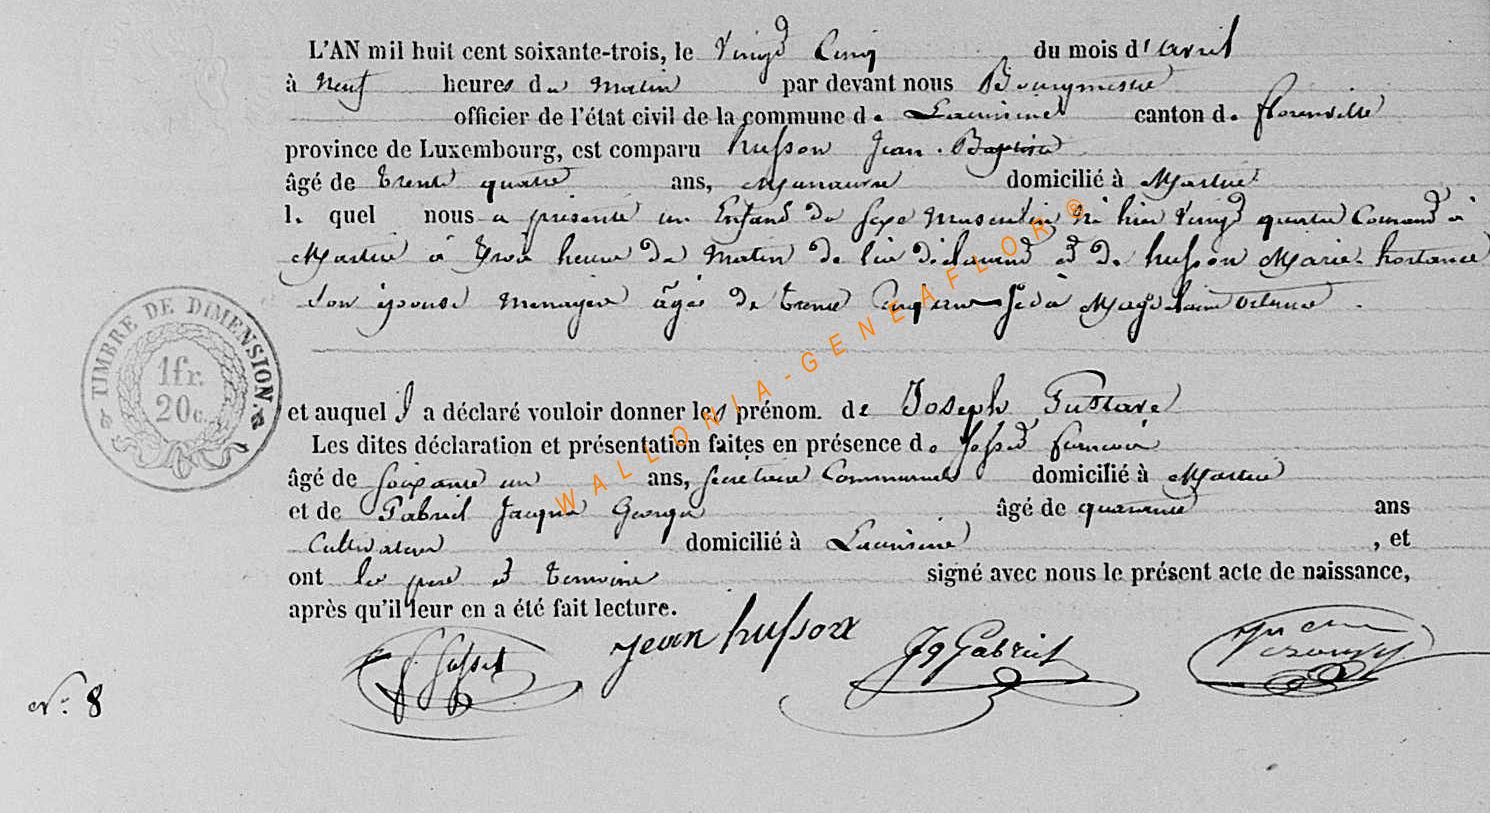 L'AN mil huit cent soixante-trois, le Vingt Cinq du mois d'avril
à Neuf heures du matin par devant nous Bourgmestre
officier de l'état civil de la commune de Lacuisine canton de florenville
province de Luxembourg, est comparu husson Jean-Baptiste
âgé de trente quatre ans, Manœuvre domicilié à Martué
lequel nous a présenté un Enfant de sexe Masculin, né hier Vingt quatre Courant à
Martué à trois heure du Matin de lui déclarant et de husson Marie-hortance
son épouse Menagere âgée de trente
et auquel il a déclaré vouloir donner les prénom. de Joseph Gustave
Les dites déclaration et présentation faites en présence de François
âgé de soixante un ans, secrétaire Communal domicilié à Martué
et de Gabriel Jacques George âgé de quarante ans
Cultivateur domicilié à Lacuisine , et
ont le pere et temoins signé avec nous le présent acte de naissance,
après qu'il leur en a été fait lecture.
Jean husson
Jq Gabriel
N°: 8
TIMBRE DE DIMENSION.
1fr.
20c.
WALLONIA-GENEAFLOR ®